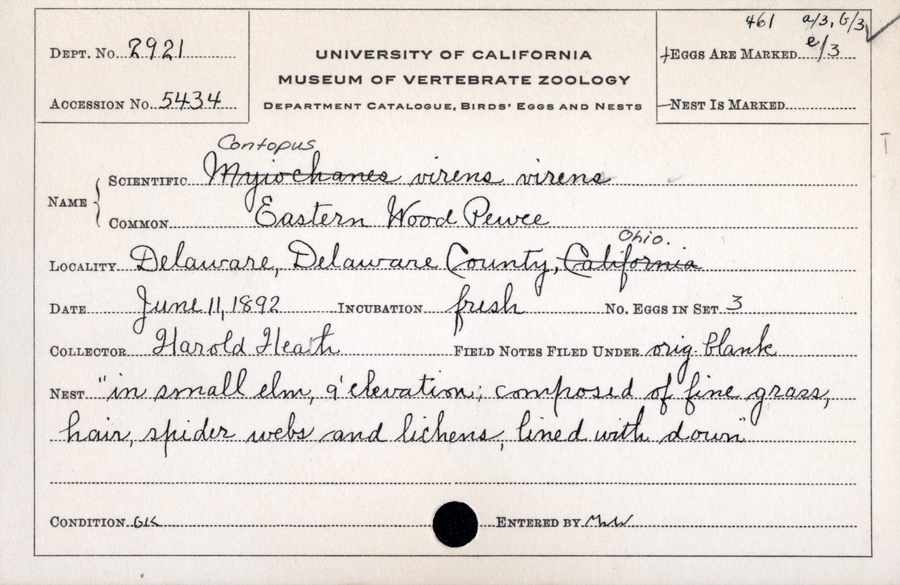 461 a/3, b/3,
Dept. No. 2921
UNIVERSITY OF CALIFORNIA
e/3
Eggs Are Marked
MUSEUM OF VERTEBRATE ZOOLOGY
Accession No. 5434
Department Catalogue, Birds' Eggs and Nests
Nest Is Marked
Contopus
Name
Scientific Myiochanes virens virens
Common Eastern Wood Pewee
Ohio.
Locality Delaware, Delaware County, California
Date June 11, 1892 Incubation fresh No. Eggs in Set 3
Collector Harold Heath Field Notes Filed Under orig. blank
Nest "in small elm, 9' elevation; composed of fine grass,
hair, spider webs and lichens, lined with down"
Condition GK Entered by